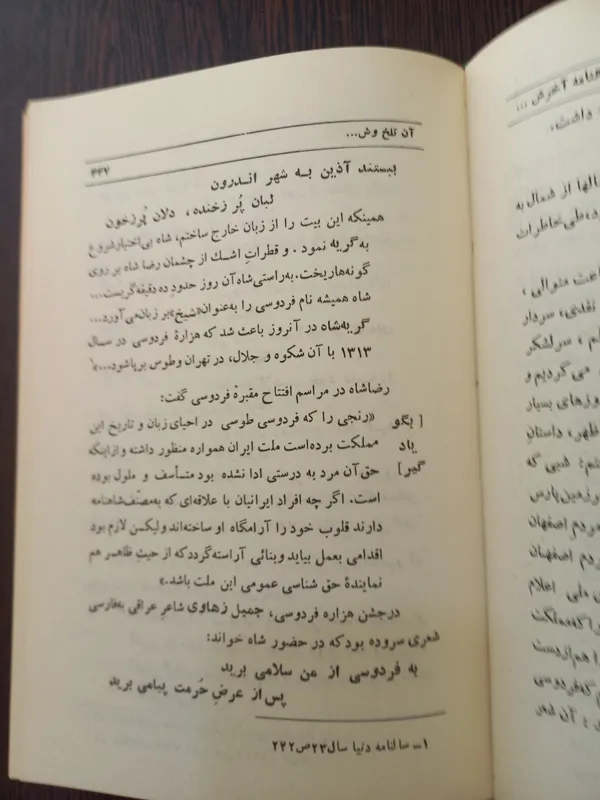 آن تلخ وش...
۳۳۷
ببستند آذین به شهر اندرون
لبان پُر زخنده، دلان پُرزخون
همینکه این بیت را از زبان خارج ساختم، شاه بی‌اختیار شروع
به‌گریه نمود. و قطرات اشك از چشمان رضا شاه بر روی
گونه‌هاریخت. به‌راستی شاه آن روز حدود ده دقیقه گریست...
شاه همیشه نام فردوسی را به‌عنوان «شیخ» بر زبان می‌آورد...
گریه‌شاه در آنروز باعث شد که هزارهٔ فردوسی در سال
۱۳۱۳ با آن شکوه و جلال، در تهران وطوس برپاشود...»۱
رضاشاه در مراسم افتتاح مقبرهٔ فردوسی گفت:
[بگو «رنجی را که فردوسی طوسی در احیای زبان و تاریخ این
یاد مملکت برده‌است ملت ایران همواره منظور داشته و ازاینکه
گیر] حق آن مرد به درستی ادا نشده بود متأسف و ملول بوده
است. اگر چه افراد ایرانیان با علاقه‌ای که به‌مصنّف شاهنامه
دارند قلوب خود را آرامگاه او ساخته‌اند ولیکن لازم بود
اقدامی بعمل بیاید وبنائی آراسته‌گردد که از حیث ظاهر هم
نمایندهٔ حق شناسی عمومی این ملت باشد.»
درجشن هزاره فردوسی، جمیل زهاوی شاعر عراقی به‌فارسی
شعری سروده بودکه در حضور شاه خواند:
به فردوسی از من سلامی برید
پس از عرض حُرمت پیامی برید
۱ــ سالنامه دنیا سال ۲۳ ص ۲۴۲
داشت.
الها از شمال به
د، طی خاطرات
اعت متوالی،
نقدی، سردار
م، سرلشکر
می گردیم و
روزهای بسیار
ظهر، داستان
تم؛ شبی که
رزمین پارس
مردم اصفهان
مردم اصفهان
ملی اعلام
را که‌مملکت
را هم‌ازدست
که‌فردوسی
: آن شعر